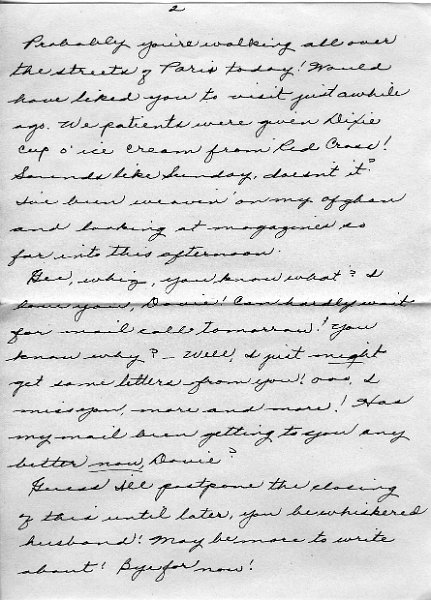 2
Probably you're walking all over
the streets of Paris today! Would
have liked you to visit just awhile
ago. We patients were given Dixie
cup o' ice cream from Red Cross!
Sounds like Sunday, doesn't it?
I've been weavin' on my afghan
and looking at magazines so
far into this afternoon.
Gee, whiz, you know what? I
love you, Davie! Can hardly wait
for mail call tomorrow! You
know why? - Well, I just might
get some letters from you! ooo, I
miss you, more and more! Has
my mail been getting to you any
better now, Davie?
Guess I'll postpone the closing
of this until later, you be whiskered
husband! May be more to write
about! Bye for now!